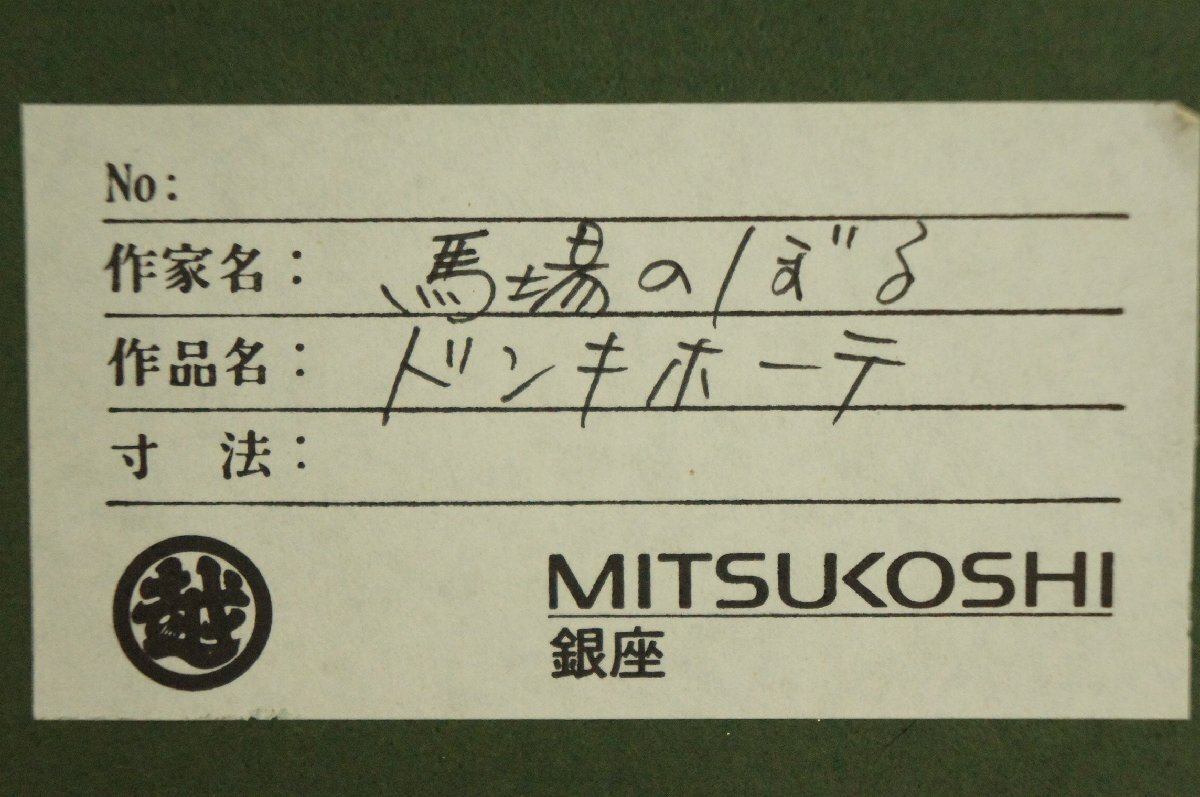 No:
作家名： 馬場のぼる
作品名： ドンキホーテ
寸　法：
越
MITSUKOSHI
銀座